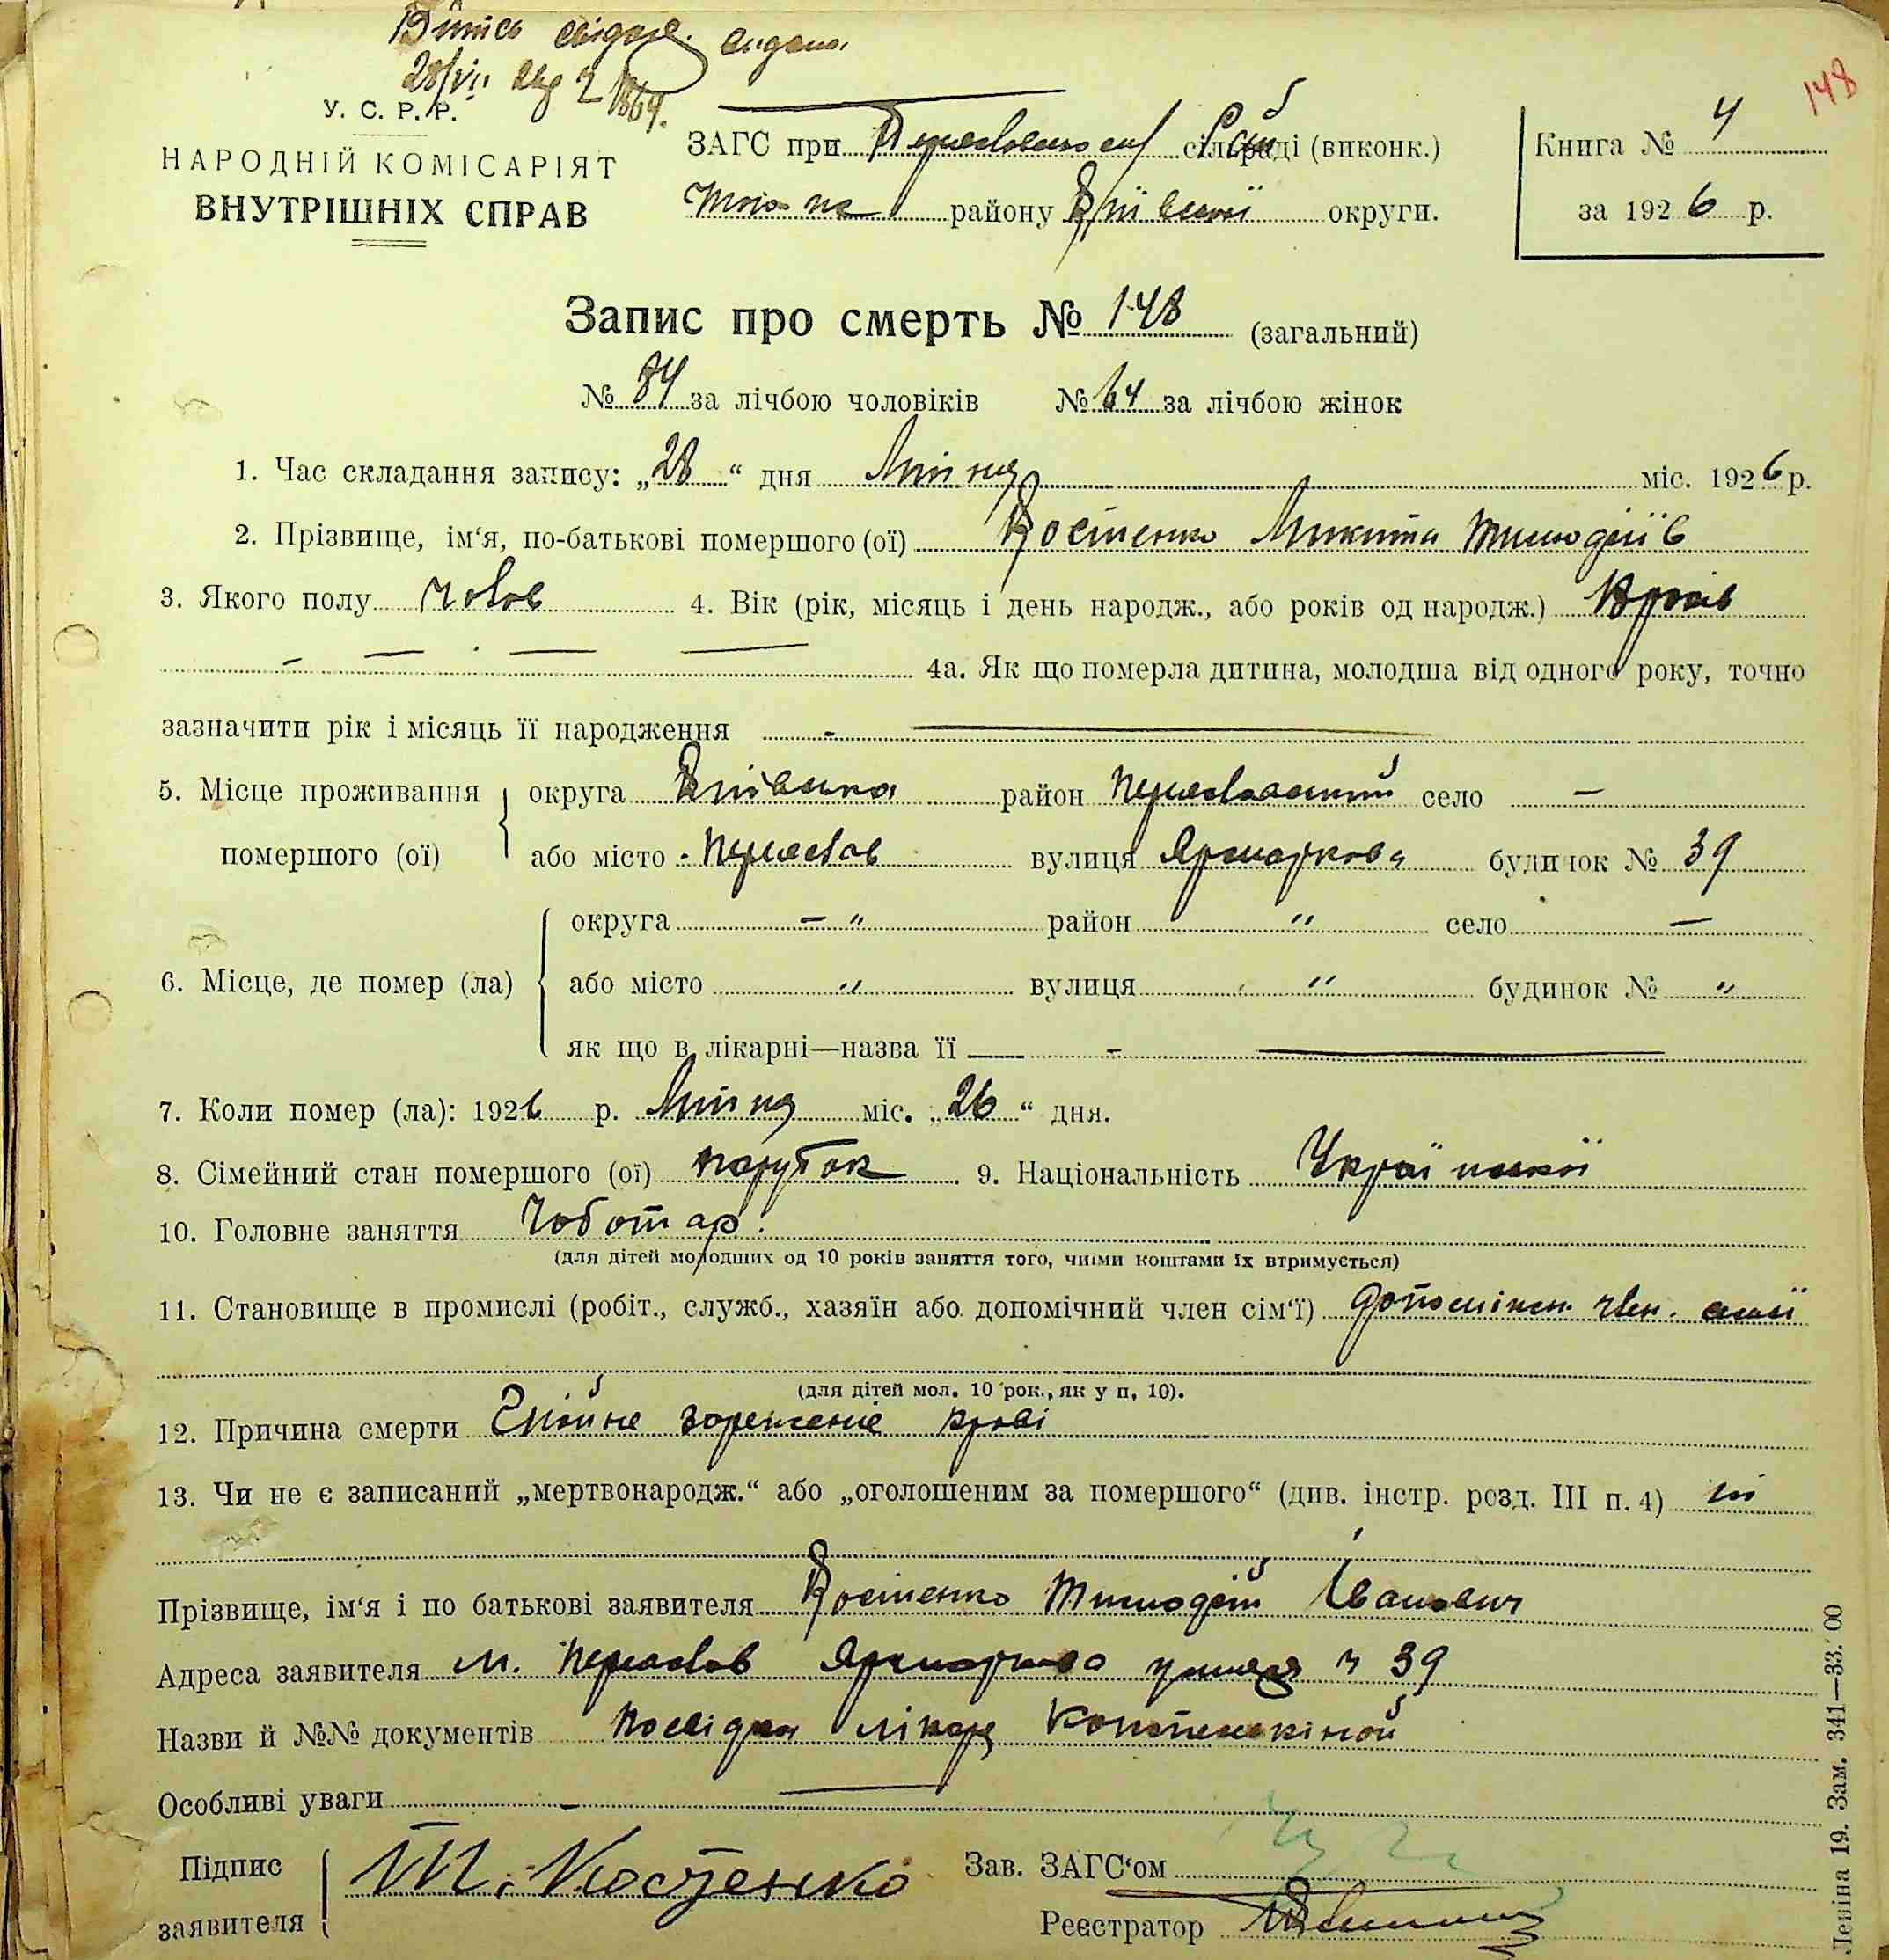 Витяг свідоцт. видано.
28/VII
148
У. С. Р. Р.
НАРОДНІЙ КОМІСАРІЯТ
ВНУТРІШНІХ СПРАВ
ЗАГС при Переяславському Рай сільраді (виконк.)
району Київської округи.
Книга № 4
за 1926 р.
Запис про смерть № 148 (загальний)
№ 84 за лічбою чоловіків № 64 за лічбою жінок
1. Час складання запису: „28“ дня Липня міс. 1926 р.
2. Прізвище, ім‘я, по-батькові помершого (ої) Костенко Микита Тимофіїв
3. Якого полу чолов 4. Вік (рік, місяць і день народж., або років од народж.) років
4а. Як що померла дитина, молодша від одного року, точно
зазначити рік і місяць її народження -
5. Місце проживання помершого (ої) округа Київська район Переяславський село —
або місто Переяслав вулиця Ярмаркова будинок № 39
6. Місце, де помер (ла) округа — „ район „ село —
або місто „ вулиця „ будинок № „
як що в лікарні—назва її —
7. Коли помер (ла): 1926 р. Липня міс. „26“ дня.
8. Сімейний стан помершого (ої) парубок 9. Національність Української
10. Головне заняття Чоботар.
(для дітей молодших од 10 років заняття того, чиїми коштами їх втримується)
11. Становище в промислі (робіт., служб., хазяїн або допомічний член сім‘ї) допоміжн. член. сімї
(для дітей мол. 10 рок., як у п, 10).
12. Причина смерти Гнойне зареженіє крові
13. Чи не є записаний „мертвонародж.“ або „оголошеним за помершого“ (див. інстр. розд. III п. 4) ні
Прізвище, ім‘я і по батькові заявителя Костенко Тимофій Іванович
Адреса заявителя м. Переяслав Ярмаркова улиця ч 39
Назви й №№ документів посвідка лікаря
Особливі уваги —
Підпис заявителя Т. Костенко
Зав. ЗАГС‘ом
Реєстратор
Леніна 19. Зам. 341—33.